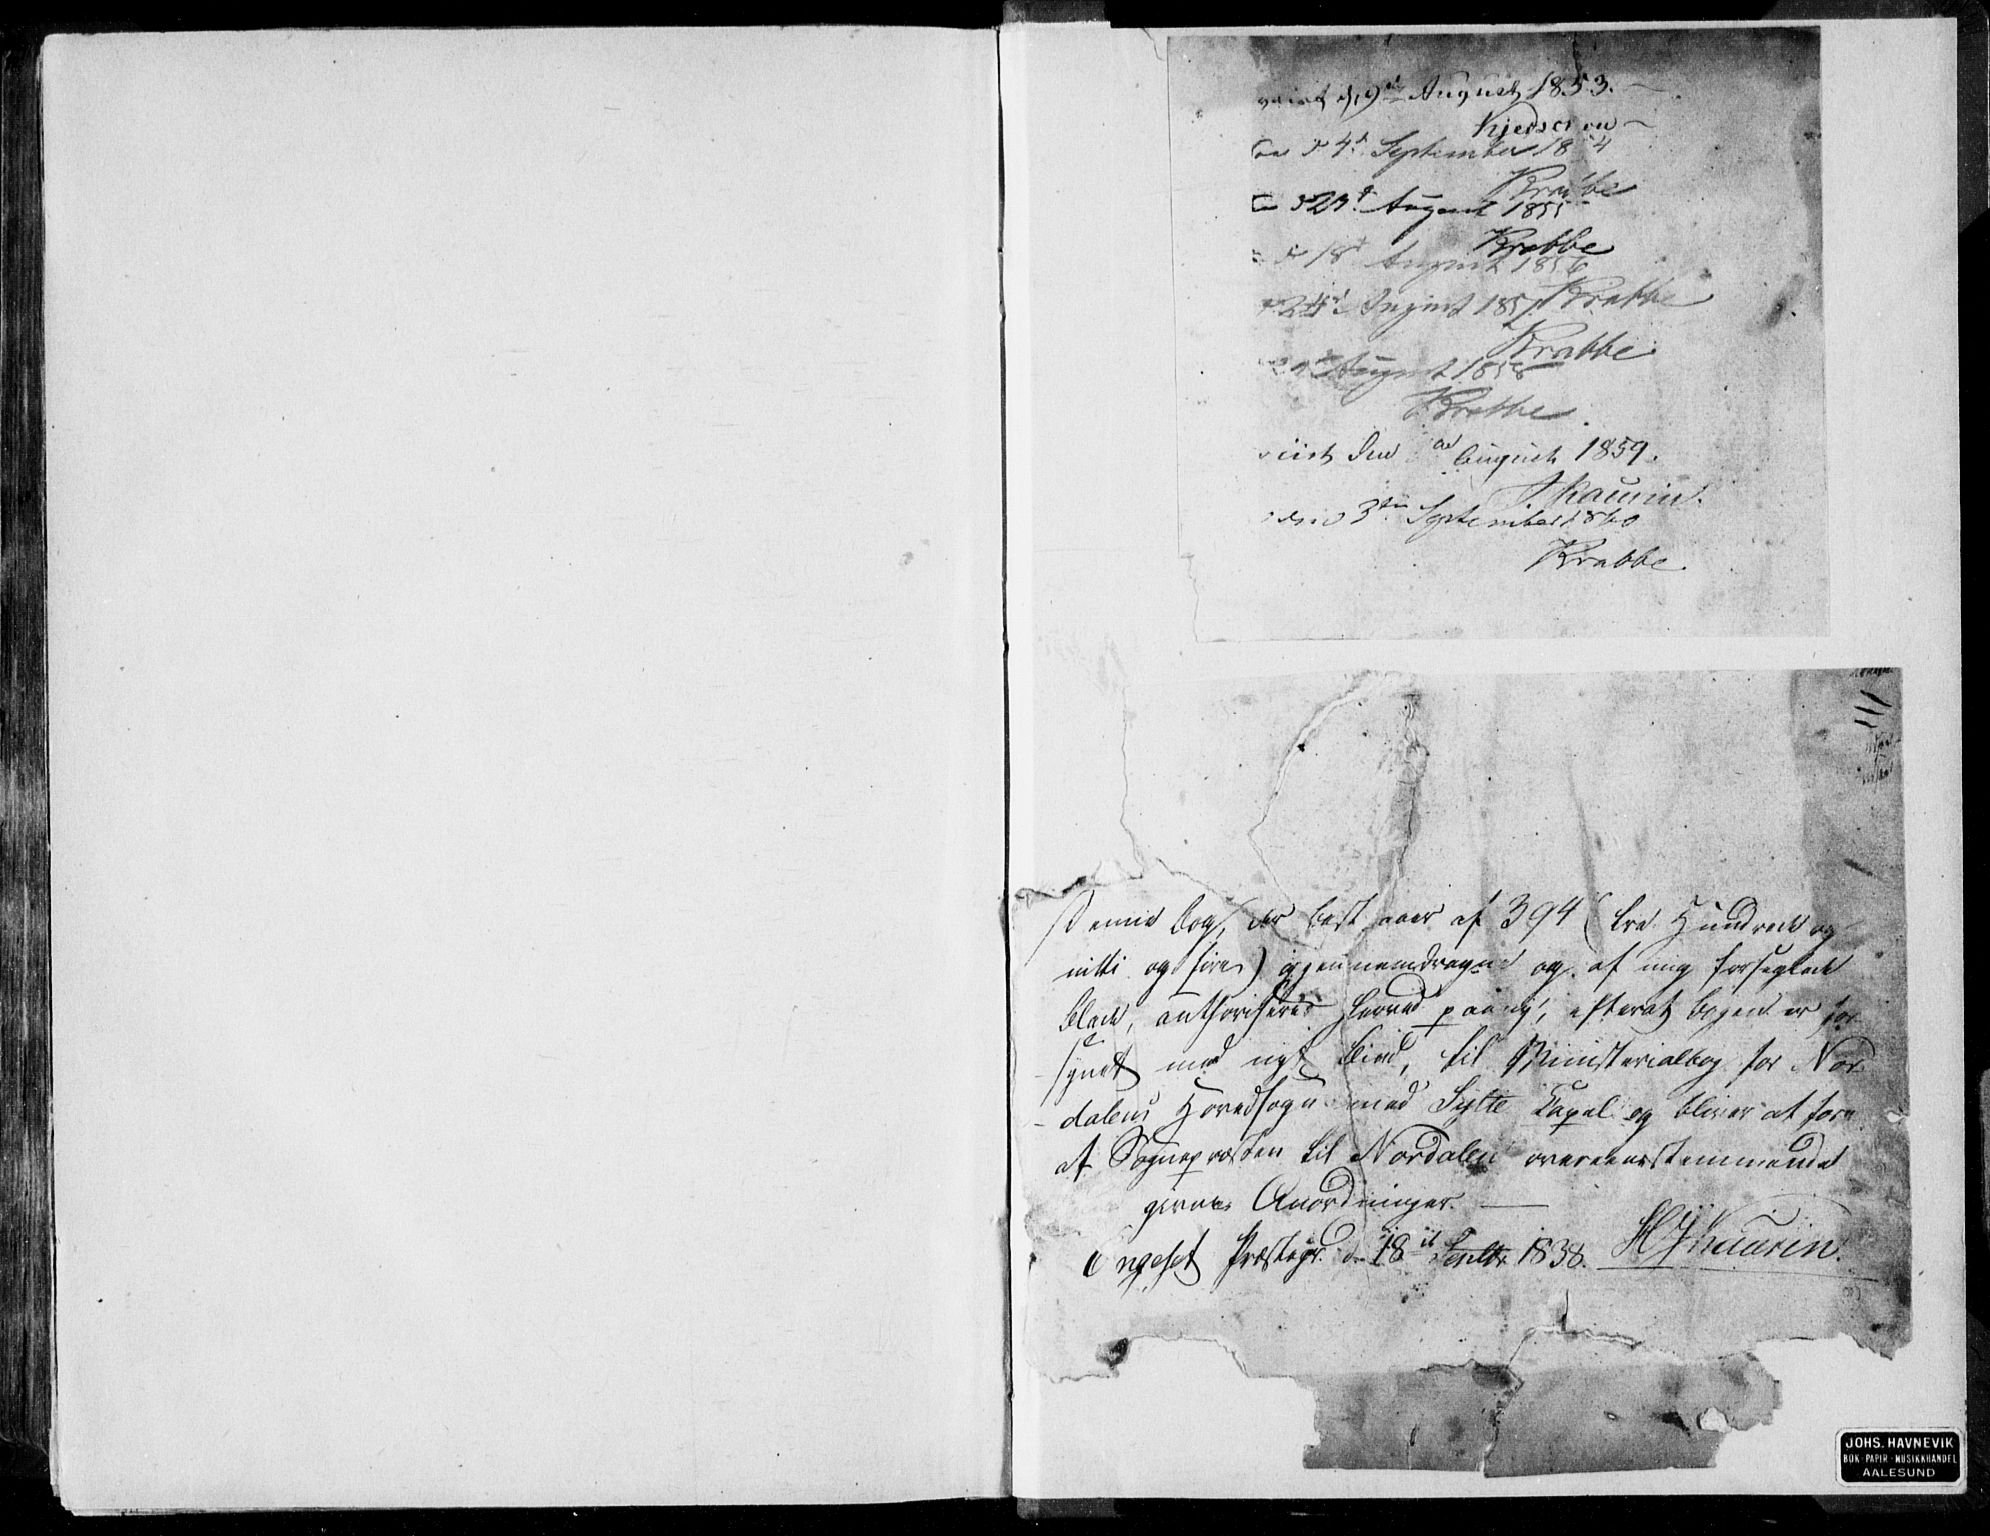 d 19de August 1853.
Kjerschow
d 4d September 18 4
Krabbe
d 23d August 1855
Krabbe
d 18d August 1856
24d August 1857 Krabbe
Krabbe
August 1858
Krabbe
viist den August 1859.
Thaurin.
den 3die September 1860
Krabbe.
Denne Bog, der bestaaer af 394 (tre Hundrede og
nitti og fire) igjennemdragne og af mig forseglede
Blade, authoriseres herved paany, efterat Bogen er for
synet med nyt Bind, til Ministerialbog for Nor
dalens Hovedsogn med Sylte Capel og bliver at føre
af Sognepræsten til Nordalen overeensstemmende
givne Anordninger. —
Engeset Præstegd. d 18de Septbr 1838. HJThaurin.
JOHS. HAVNEVIK
BOK-PAPIR-MUSIKKHANDEL
AALESUND